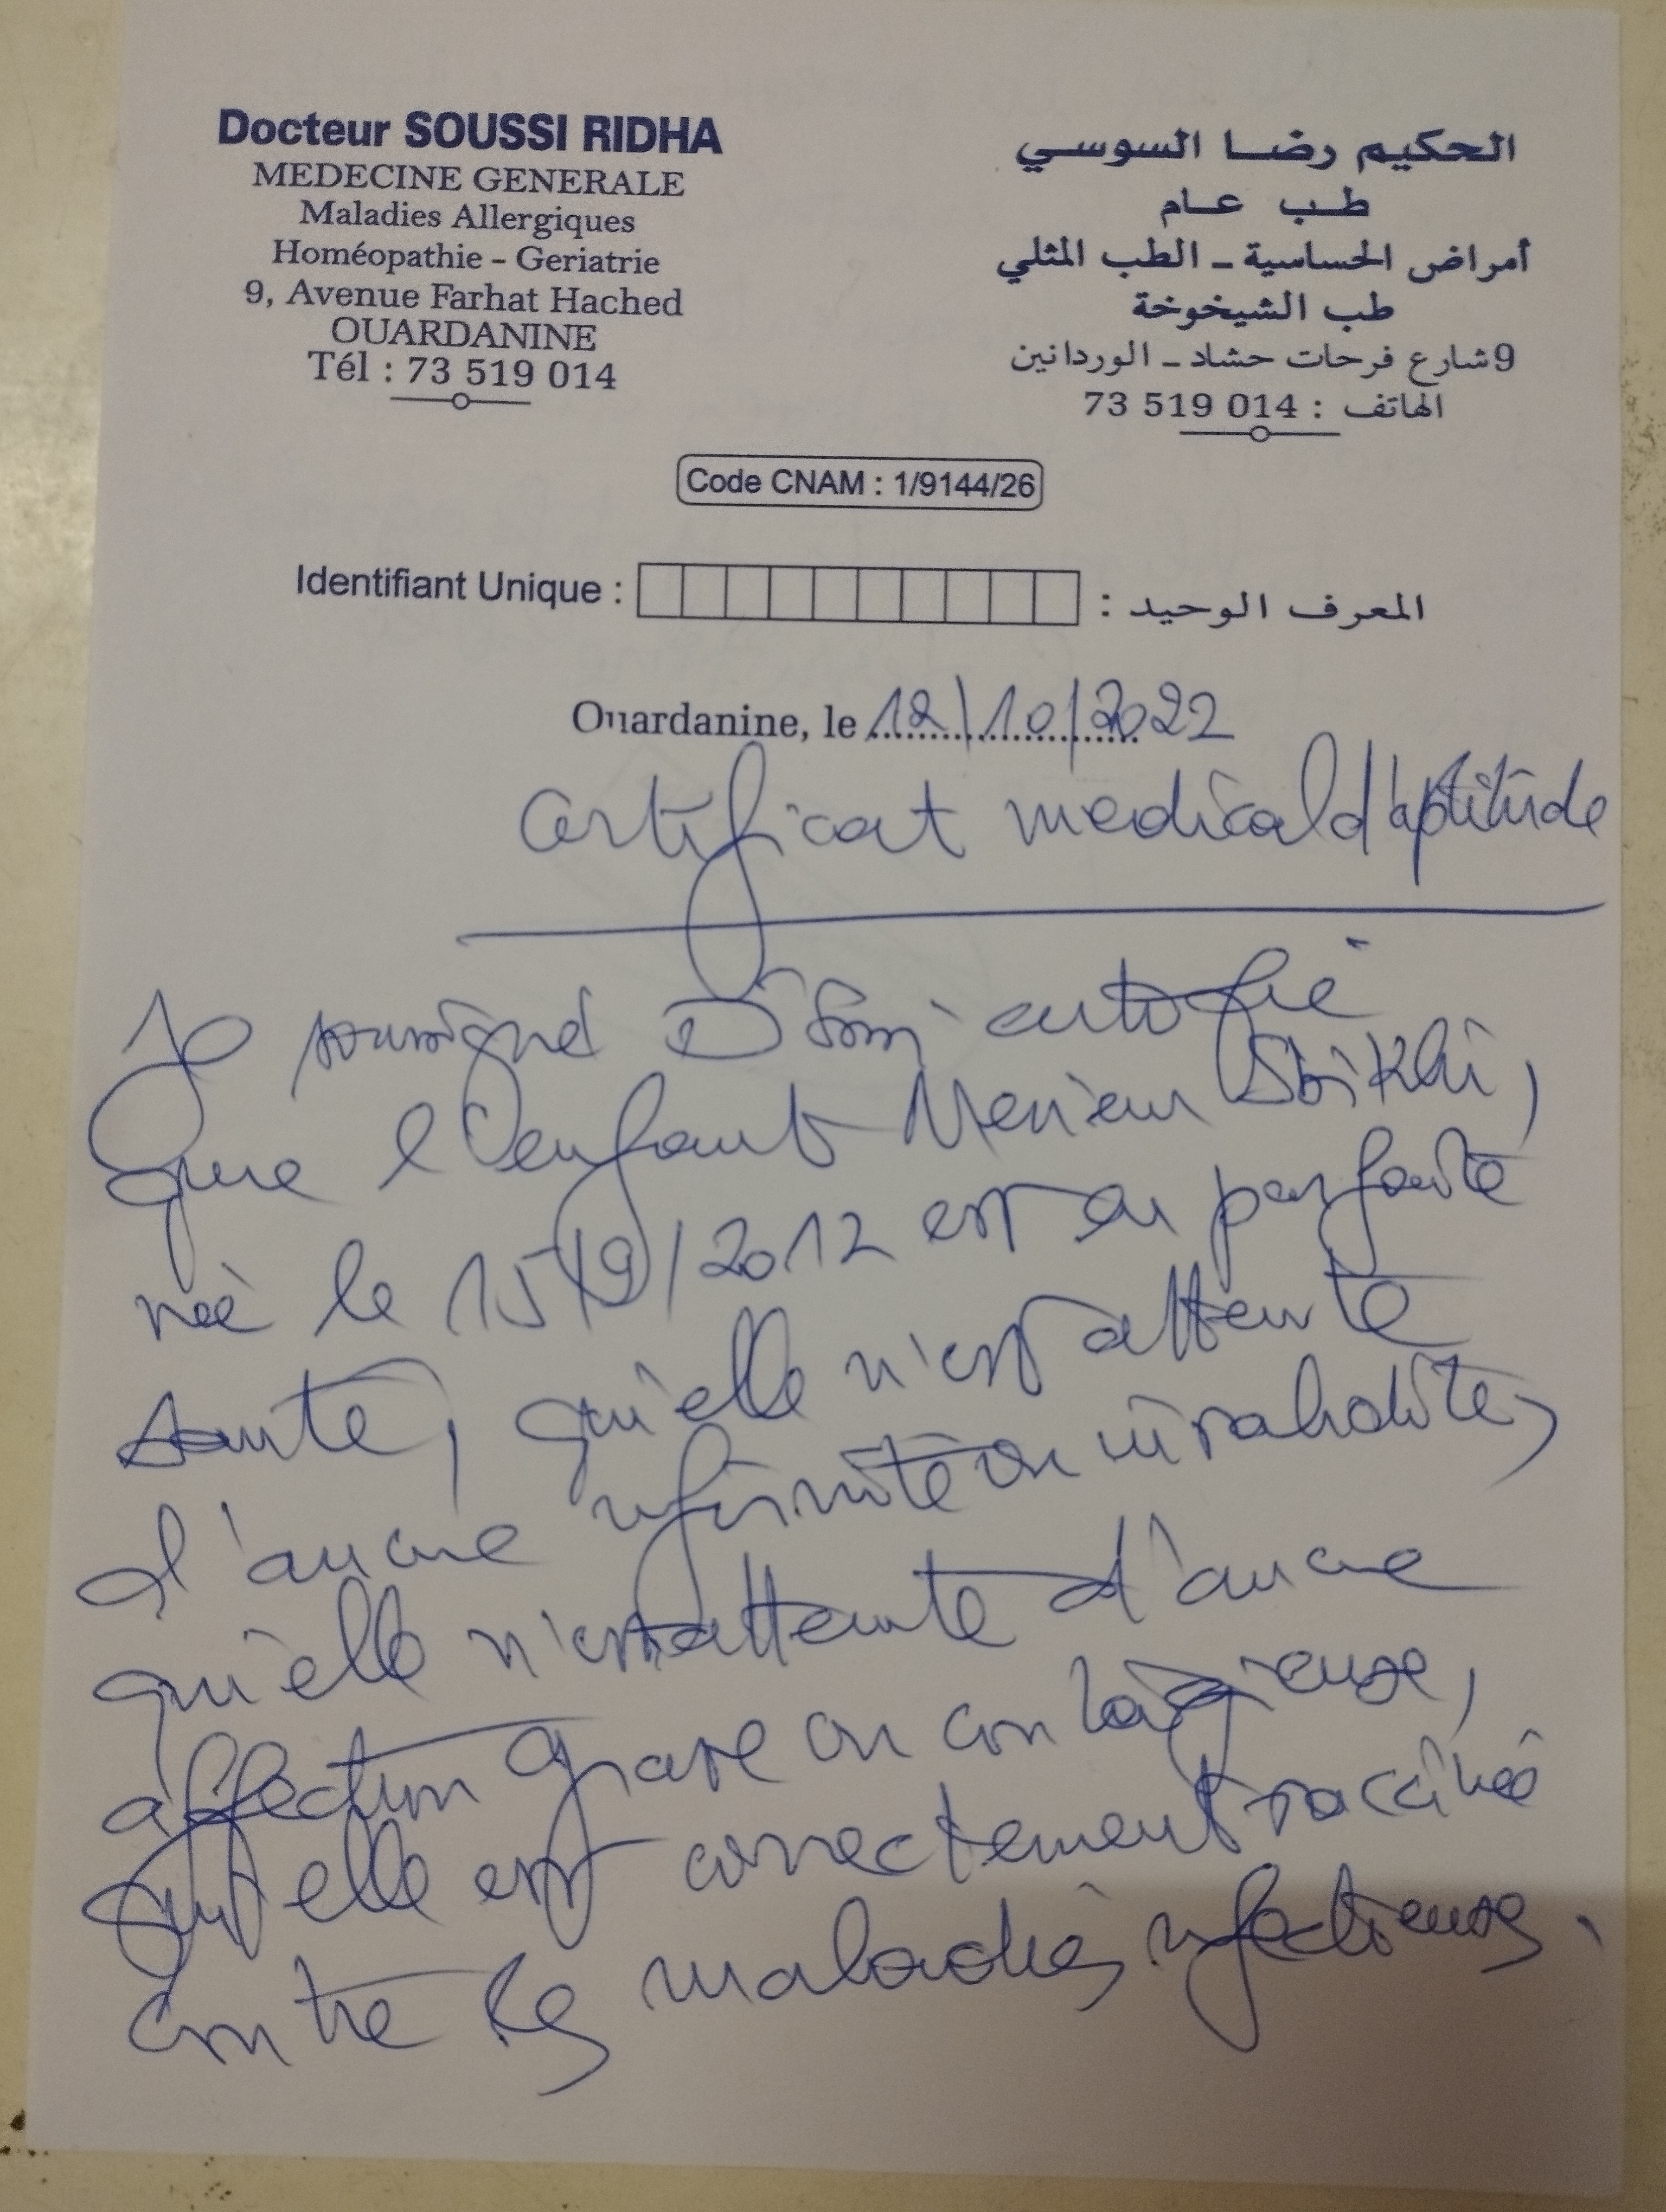 Docteur SOUSSI RIDHA
MEDECINE GENERALE
Maladies Allergiques
Homéopathie - Geriatrie
9, Avenue Farhat Hached
OUARDANINE
Tél : 73 519 014
الحكيم رضا السوسي
طب عام
أمراض الحساسية - الطب المثلي
طب الشيخوخة
9 شارع فرحات حشاد - الوردانين
الهاتف : 73 519 014
Code CNAM : 1/9144/26
Identifiant Unique : المعرف الوحيد :
Ouardanine, le 12/10/2022
Certificat medical d'aptitude
Je soussigné Dr
que l'enfant Meriem Sbikhi,
née le 15/9/2012 est en parfaite
santé, qu'elle n'est atteinte
d'aucune infirmité ou invalidité,
qu'elle n'est atteinte d'aucune
affection grave ou contagieuse,
qu'elle est correctement vaccinée
contre les maladies infectieuses.